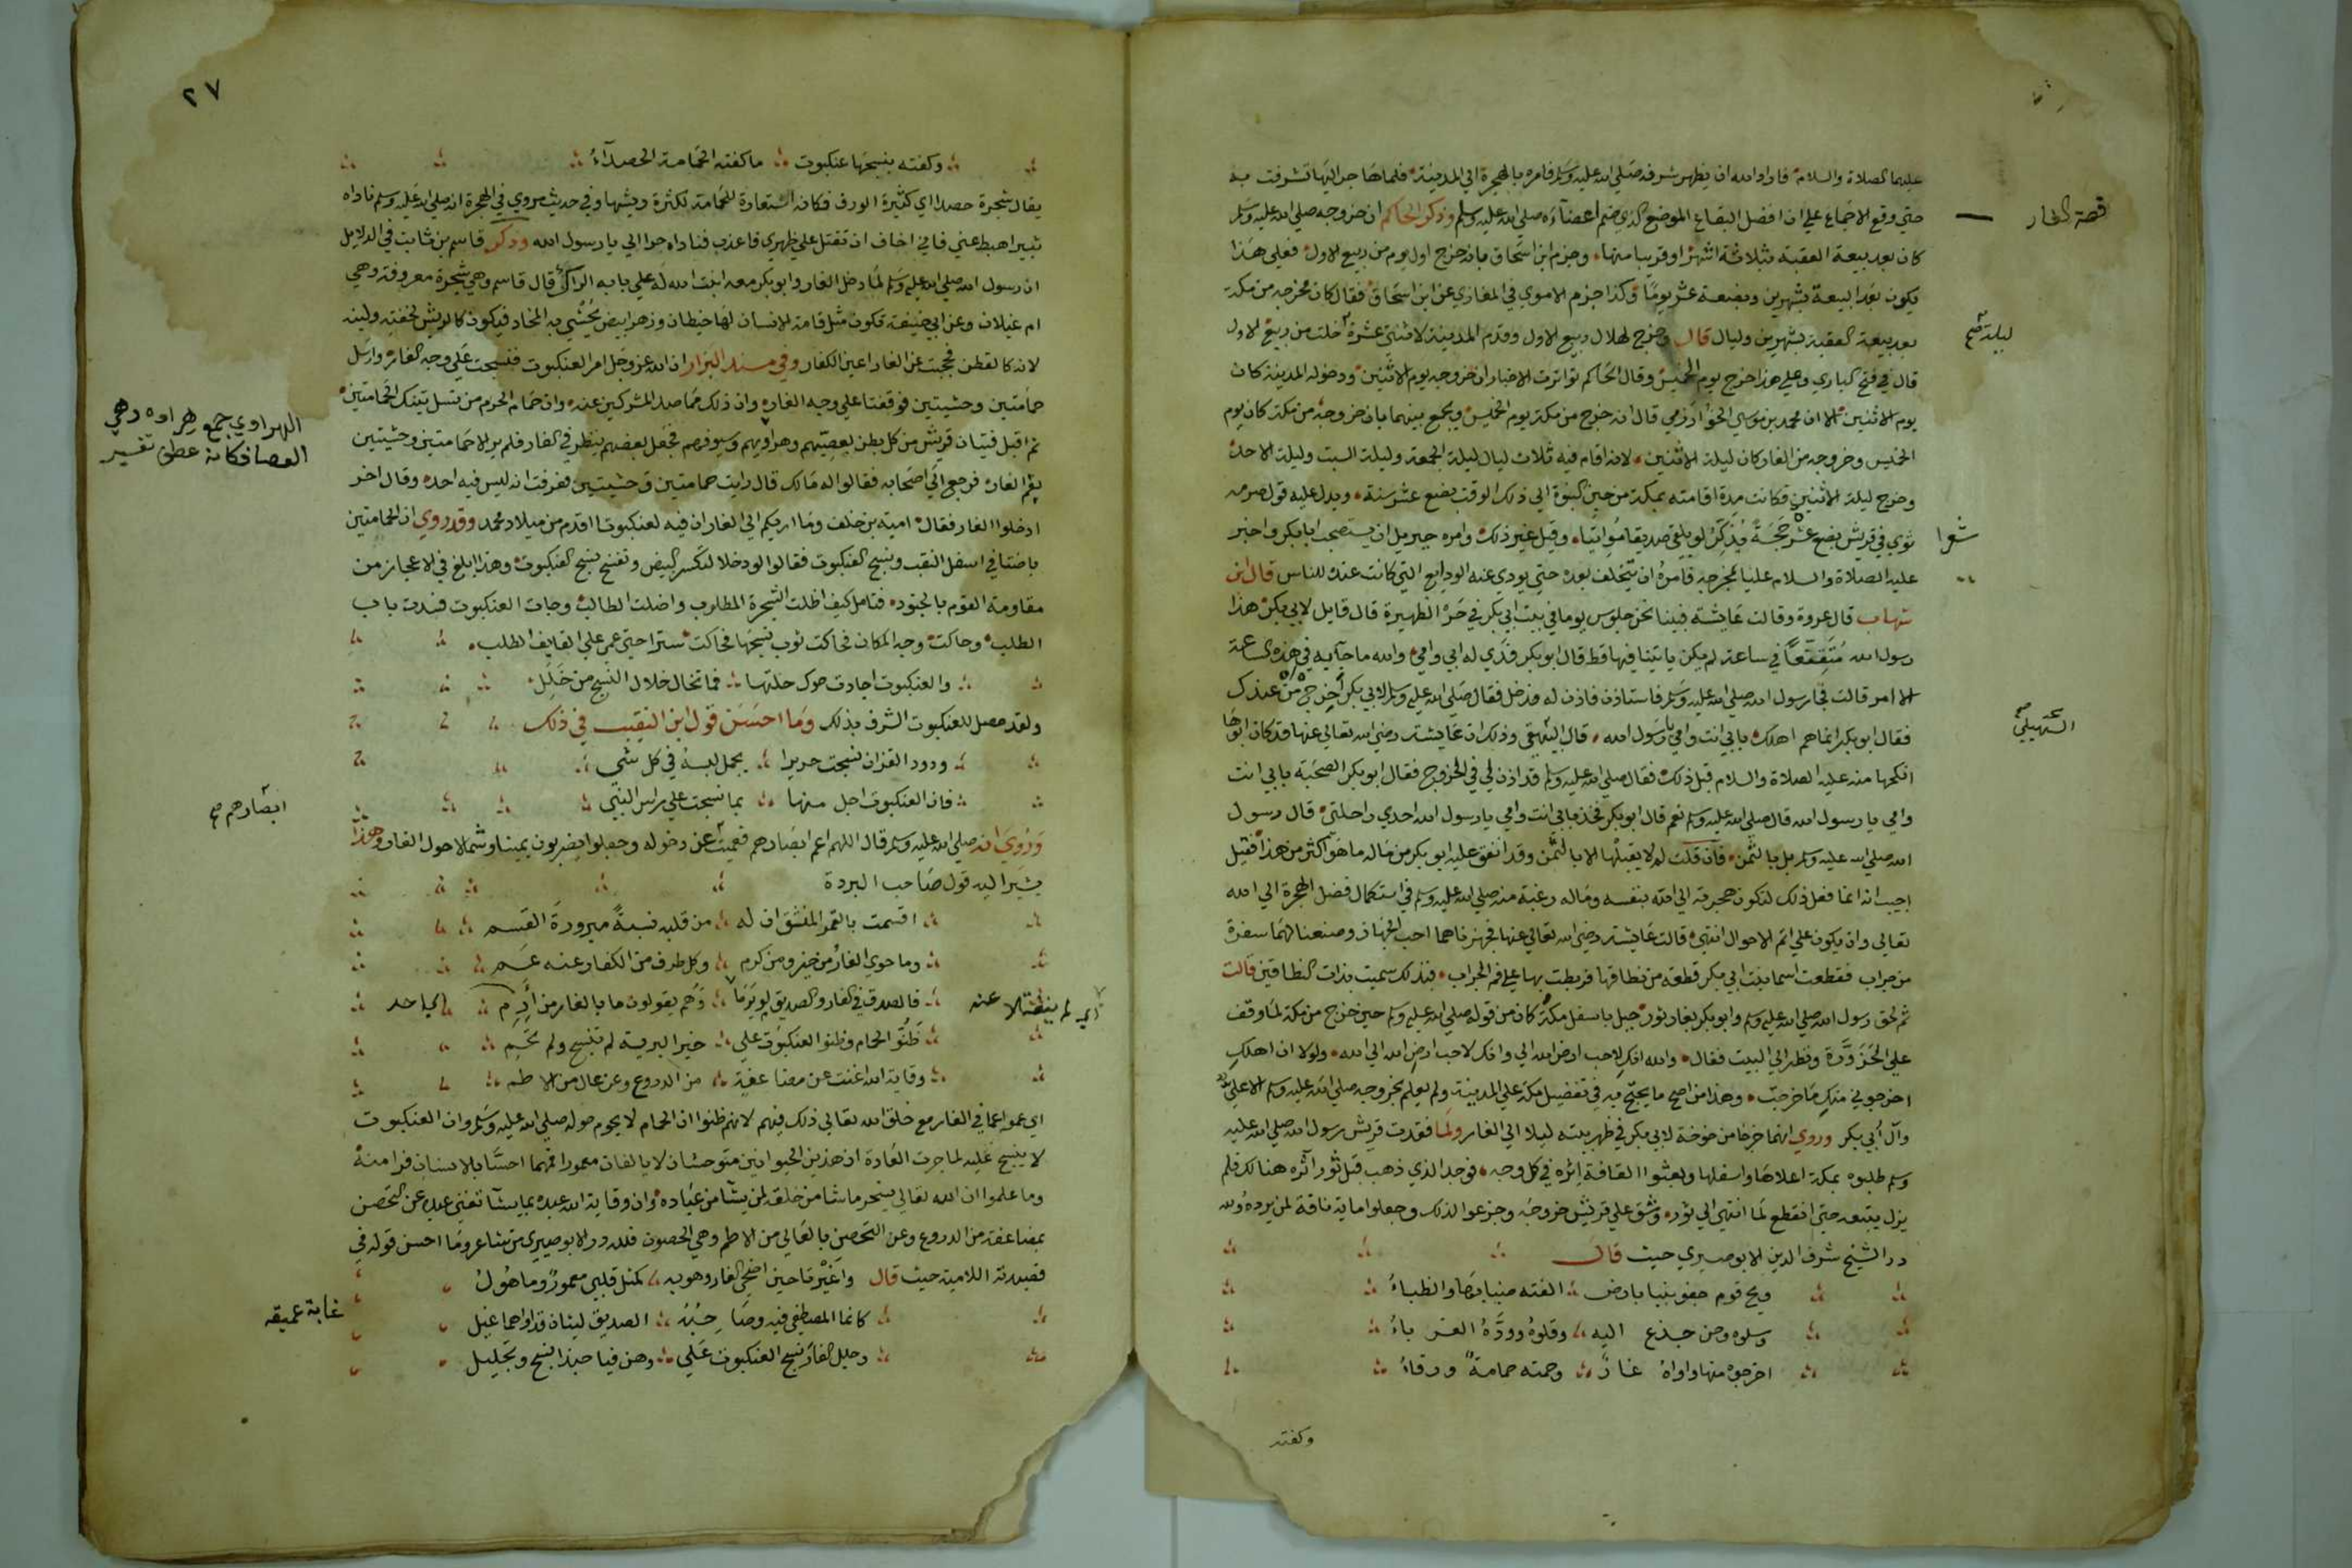 عليهما الصلاة والسلام فاراد الله ان يظهر شرفه صلى الله عليه وسلم فامره بالهجرة الي المدينة فلما هاجر اليها تشرفت به
قصة الغار
حتي وقع الاجماع علي ان افضل البقاع الموضع الذي ضم اعضآءه صلي الله عليه وسلم وذكر الحاكم ان خروجه صلي الله عليه وسلم
كان بعد بيعة العقبة بثلاثة اشهر او قريبا منها وجزم ابن اسحاق بانه خرج اول يوم من ربيع الاول فعلي هذا
يكون بعد البيعة بشهرين وبضعة عشر يوما وكذا جزم الاموي في المغازي عن ابن اسحاق فقال كان مخرجه من مكة
بعد بيعة العقبة بشهرين وليال قال وخرج لهلال ربيع الاول وقدم المدينة لاثنتي عشرة خلت من ربيع الاول
ليلة صح
قال في فتح الباري وعلي هذا خرج يوم الخميس وقال الحاكم تواترت الاخبار ان خروجه يوم الاثنين ودخوله المدينة كان
يوم الاثنين الا ان محمد بن موسي الخوارزمي قال انه خرج من مكة يوم الخميس ويجمع بينهما بان خروجه من مكة كان يوم
الخميس وخروجه من الغار كان ليلة الاثنين لانه اقام فيه ثلاث ليال ليلة الجمعة وليلة السبت وليلة الاحد
وخرج ليلة الاثنين فكانت مدة اقامته بمكة من حين النبوة الي ذلك الوقت بضع عشر سنة ويدل عليه قول صرمه
شعرا
ثوي في قريش بضع عشر حجة يذكر لو يلقي صديقا مواتيا وقيل غير ذلك وامره جبريل ان يستصحب ابابكر واخبر
عليه الصلاة والسلام عليا بمخرجه فامره ان يتخلف بعده حتي يودي عنه الودايع التي كانت عنده للناس قال ابن
شهاب قال عروة وقالت عايشة فبينا نحن جلوس يوما في بيت ابي بكر في حر الظهيرة قال قايل لابي بكر هذا
رسول الله متقنعا في ساعة لم يكن ياتينا فيها قط قال ابو بكر فدي له ابي وامي والله ما جآ به في هذه الساعة
الا امر قالت فجا رسول الله صلي الله عليه وسلم فاستاذن فاذن له فدخل فقال صلي الله عليه وسلم لابي بكر اخرج من عندك
فقال ابو بكر انما هم اهلك بابي انت وامي يا رسول الله قال السهيلي وذلك ان عايشة رضي الله تعالي عنها قد كان ابوها
السهيلي صح
انكحها منه عليه الصلاة والسلام قبل ذلك فقال صلي الله عليه وسلم قد اذن لي في الخروج فقال ابو بكر الصحبة بابي انت
وامي يا رسول الله قال صلي الله عليه وسلم نعم قال ابو بكر فخذ بابي انت وامي يا رسول الله احدي راحلتي قال رسول
الله صلي الله عليه وسلم بل بالثمن فان قلت لم لا يقبلها الا بالثمن وقد انفق عليه ابو بكر من ماله ما هو اكثر من هذا فقبل
اجيب انه انما فعل ذلك لتكون هجرته الي الله بنفسه وماله رغبة منه صلي الله عليه وسلم في استكمال فضل الهجرة الي الله
تعالي وان يكون علي اتم الاحوال انتهي قالت عايشة رضي الله تعالي عنها فجهزناهما احب الجهاز وصنعنا لهما سفرة
من جراب فقطعت اسما بنت ابي بكر قطعة من نطاقها فربطت بها علي فم الجراب فبذلك سميت بذات النطاقين قالت
ثم لحق رسول الله صلي الله عليه وسلم وابو بكر بغار ثور جبل باسفل مكة وكان من قوله صلي الله عليه وسلم حين خرج من مكة لما وقف
علي الحزورة ونظر الي البيت فقال والله انك لاحب ارض الله الي وانك لاحب ارض الله الي الله ولولا ان اهلك
اخرجوني منك ما خرجت وهذا من اصح ما يحتج به في تفضيل مكة علي المدينة ولم يعلم بخروجه صلي الله عليه وسلم الا علي
وآل ابي بكر وروي انهما خرجا من خوخة لابي بكر في ظهر بيته ليلا الي الغار ولما فقدت قريش رسول الله صلي الله عليه
وسلم طلبوه بمكة اعلاها واسفلها وبعثوا القافة اثره في كل وجه فوجد الذي ذهب قبل ثور اثره هنالك فلم
يزل يتبعه حتي انقطع لما انتهي الي ثور وشق علي قريش خروجه وجزعوا لذلك وجعلوا ماية ناقة لمن يرده ولله
در الشيخ شرف الدين الابوصيري حيث قال
ويح قوم جفو نبيا بارض الفته ضبابها والظباءُ
وسلوه وحن جذع اليه وقلوه وودّهُ الغرباءُ
اخرجوه منها واواه غار وحمته حمامة ورقاءُ
وكفته
٢٧
وكفته بنسجها عنكبوت ما كفته الحمامة الحصدآءُ
يقال شجرة حصدا اي كثيرة الورق فكانه استعارة للحمامة لكثرة ريشها وفي حديث مروي في الهجرة انه صلي الله عليه وسلم ناداه
ثبير اهبط عني فاني اخاف ان تقتل علي ظهري فاعذب فناداه حرا الي يا رسول الله وذكر قاسم بن ثابت في الدلايل
ان رسول الله صلي الله عليه وسلم لما دخل الغار وابو بكر معه انبت الله له علي بابه الراك قال قاسم وهي شجرة معروفة وهي
ام غيلان وعن ابي حنيفة تكون مثل قامة الانسان لها خيطان وزهر ابيض يحشي به المخاد فيكون كالريش لخفته ولينه
لانه كالقطن فحجبت عن الغار اعين الكفار وفي مسند البزار ان الله عز وجل امر العنكبوت فنسجت علي وجه الغار وارسل
حمامتين وحشيتين فوقفتا علي وجه الغار وان ذلك مما صد المشركين عنه وان حمام الحرم من نسل تينك الحمامتين
ثم اقبل فتيان قريش من كل بطن بعصيهم وهراويهم وسيوفهم فجعل بعضهم ينظر في الغار فلم ير الا حمامتين وحشيتين
الهراوي جمع هراوه وهي
العصا فكانه عطف تفسير
بفم الغار فرجع الي اصحابه فقالوا له مالك قال رايت حمامتين وحشيتين فعرفت انه ليس فيه احد وقال اخر
ادخلوا الغار فقال امية بن خلف وما اربكم الي الغار ان فيه لعنكبوتا اقدم من ميلاد محمد وقد روي ان الحمامتين
باضتا في اسفل النقب ونسج العنكبوت فقالوا لو دخلا لتكسر البيض وتفسخ نسج العنكبوت وهذا ابلغ في الاعجاز من
مقاومة القوم بالجنود فتامل كيف اظلت الشجرة المطلوب واضلت الطالب وجات العنكبوت فسدت باب
الطلب وحاكت وجه المكان فحاكت ثوب نسجها فحاكت سترا حتي عمي علي القايف الطلب
والعنكبوت اجادت حوك حلتها فما تخال خلال النسج من خلل
ولقد حصل للعنكبوت الشرف بذلك وما احسن قول ابن النقيب في ذلك
ودود القزان نسجت حريرا يجمل لبسه في كل شي
فان العنكبوت اجل منها بما نسجت علي راس النبي
وروي انه صلي الله عليه وسلم قال اللهم اعم ابصارهم فعميت عن دخوله وجعلوا يضربون يمينا وشمالا حول الغار وهذا
ابصارهم صح
يشير اليه قول صاحب البردة
اقسمت بالقمر المنشق ان له من قلبه نسبة مبرورة القسم
وما حوي الغار من خير ومن كرم وكل طرف من الكفار عنه عم
فالصدق في الغار والصديق لم يرما وهم يقولون ما بالغار من ارم اي احد
اي لم ينفصلا عنه
ظنوا الحمام وظنوا العنكبوت علي خير البرية لم تنسج ولم تحم
وقاية الله اغنت عن مضاعفة من الدروع وعن عال من الاطم
اي عموا عما في الغار مع خلق الله تعالي ذلك فيهم لانهم ظنوا ان الحمام لا يحوم حوله صلي الله عليه وسلم وان العنكبوت
لا ينسج عليه لما جرت العادة ان هذين الحيوانين متوحشان لا يالفان معمورا فمهما احسا بالانسان فرا منه
وما علموا ان الله تعالي يسخر ما شا من خلقه لمن يشا من عباده وان وقاية الله عبده بما يشا تغني عبده عن التحصن
بمضاعفة من الدروع وعن التحصن بالعالي من الاطم وهي الحصون فلله در الابوصيري من شاعر وما احسن قوله في
قصيدته اللامية حيث قال واغيرتا حين اضحي الغار وهو به كمثل قلبي معمور وماهول
كانما المصطفي فيه وصاحبه الصديق ليثان قد اواهما غيل
غابة عميقه
وجلل الغار نسج العنكبوت علي وهن فيا حبذا نسج وتجليل